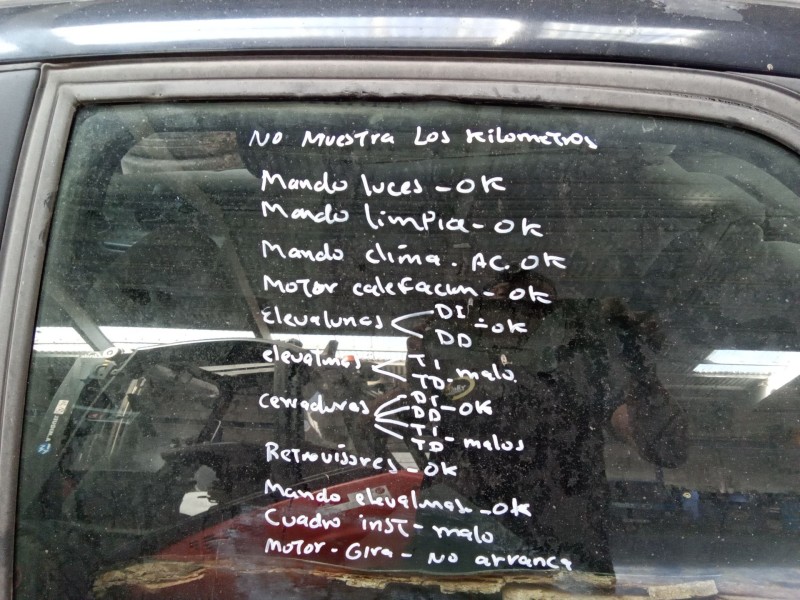 NO MUESTRA LOS KILOMETROS
Mando luces - OK
Mando limpia - OK
Mando clima. AC. OK
Motor calefacun - OK
Elevalunas DI DD - OK
elevalunas TI TD - malo.
cerraduras DI DD - OK
TI TD - malos
Retrovisores - OK
Mando elevalunas - OK
Cuadro inst - malo
Motor - Gira - NO arranca